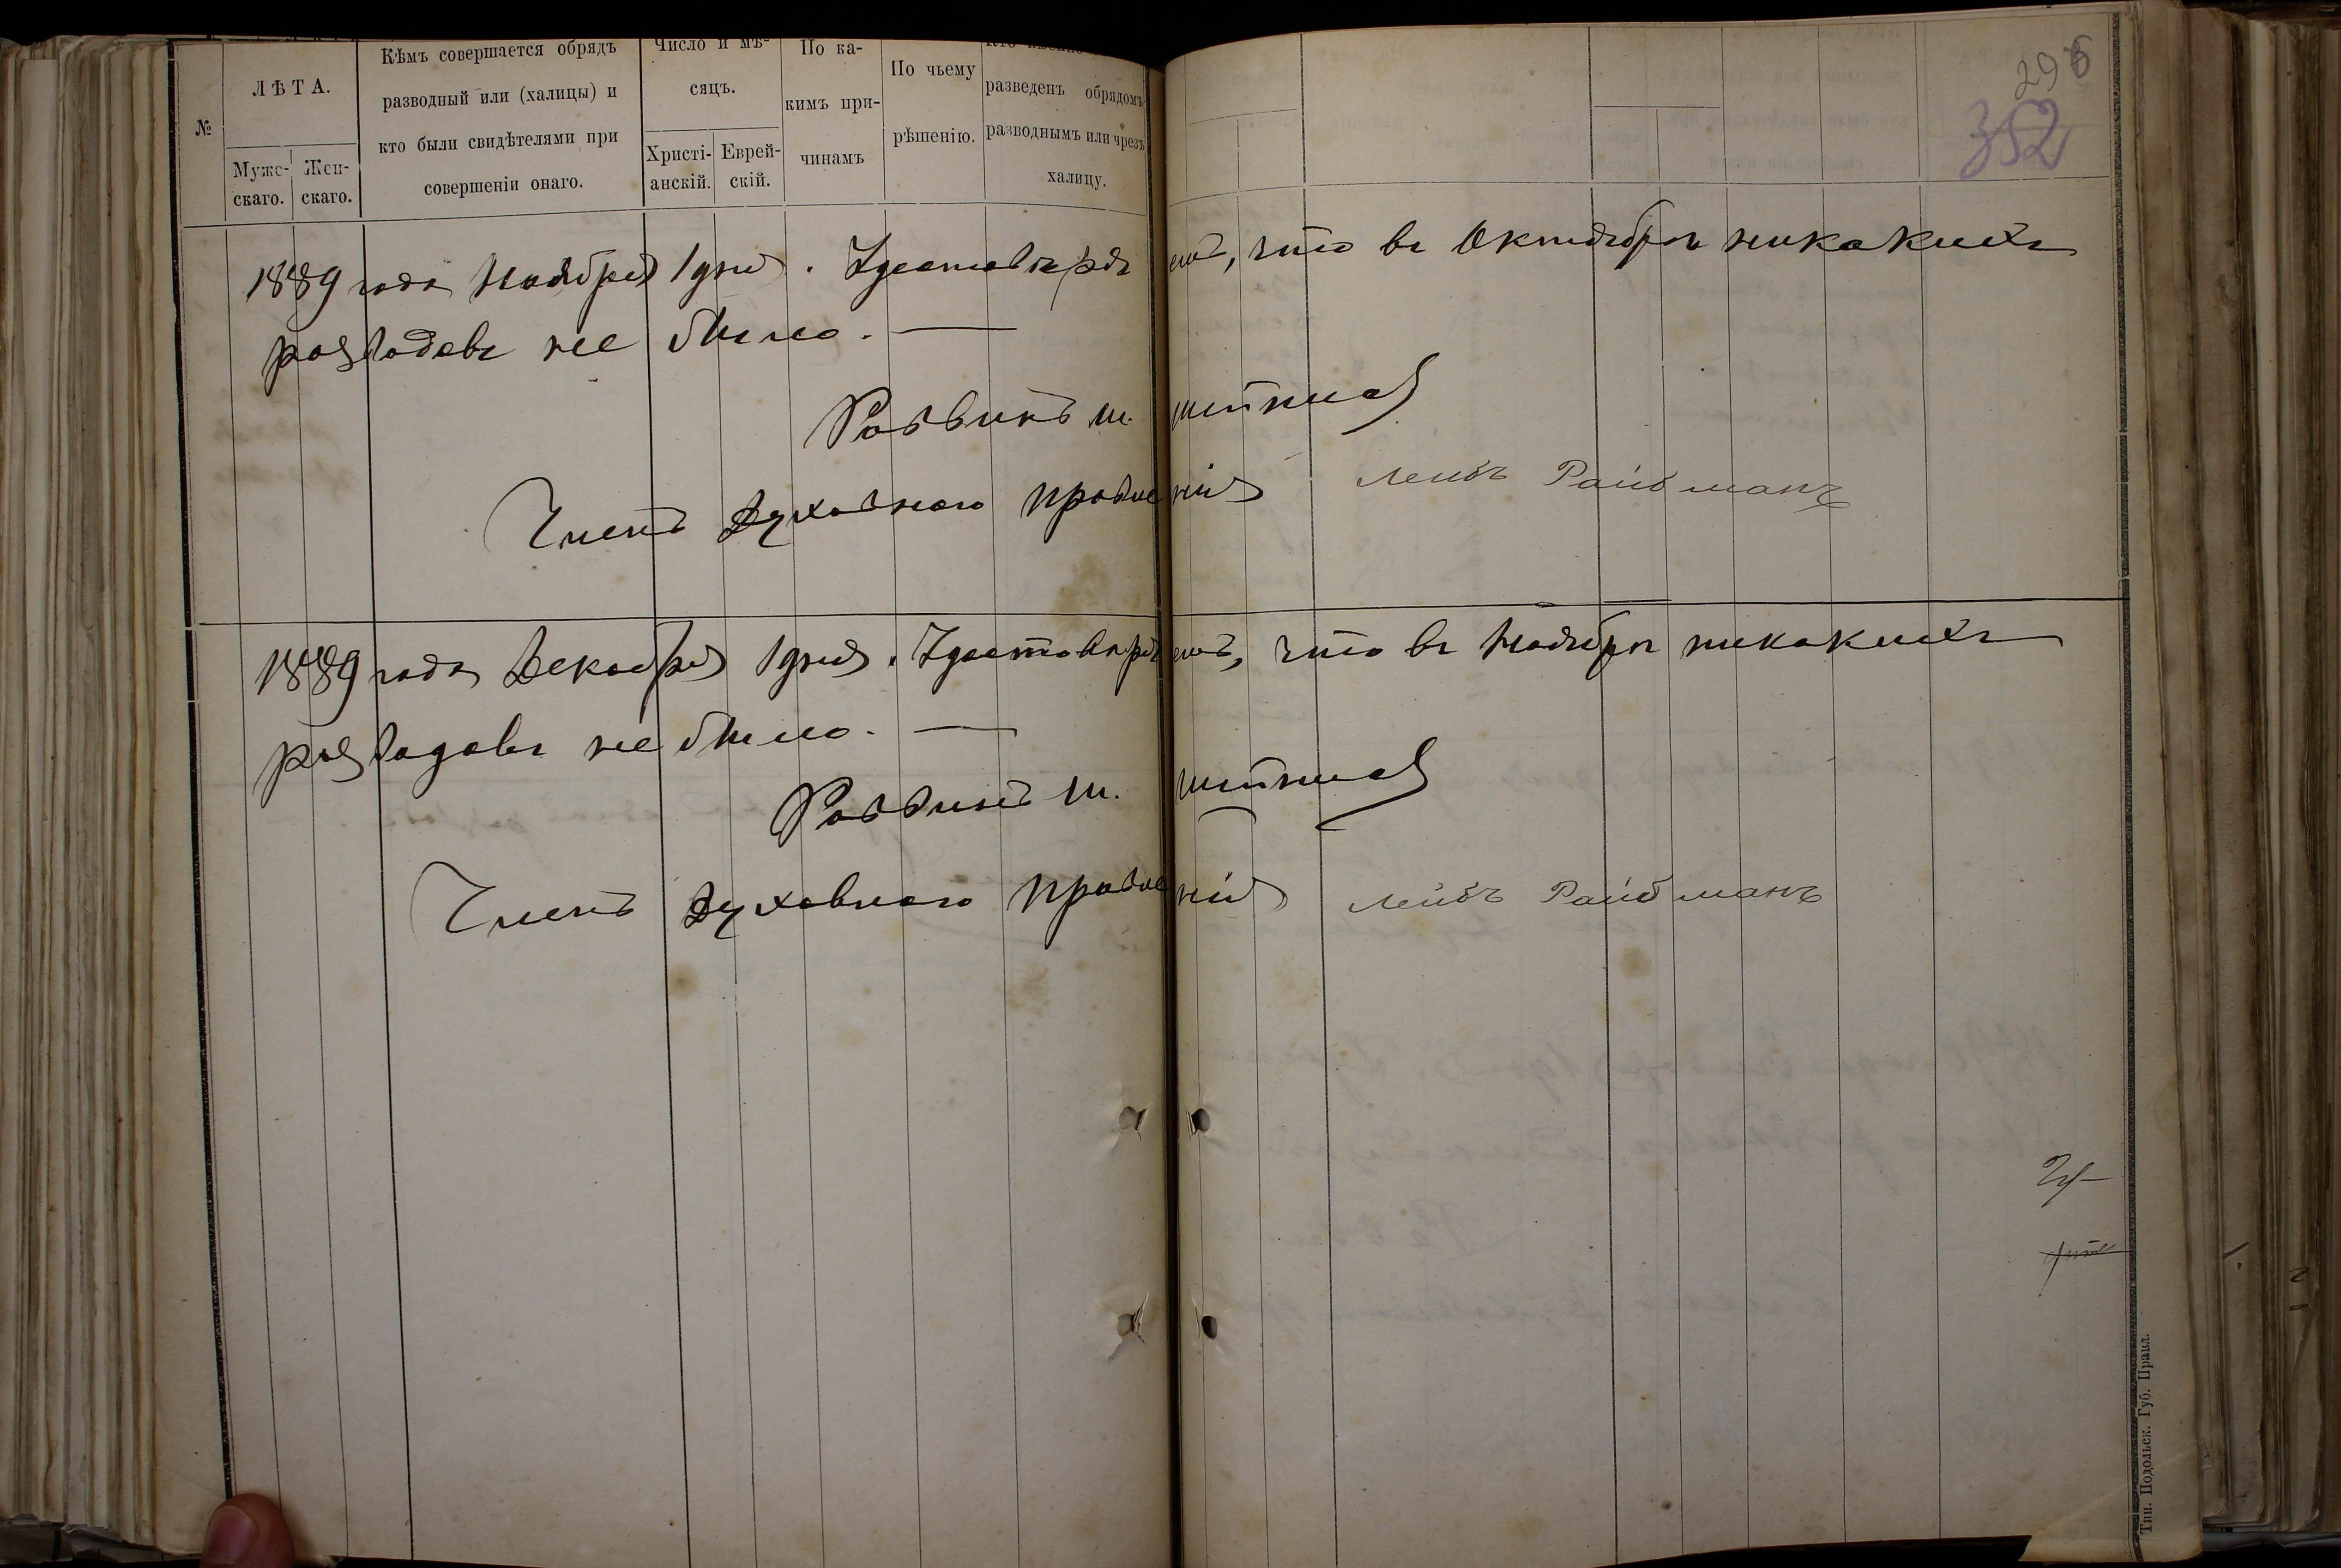 295
352
№
ЛѢТА.
Муже-
скаго.
Жен-
скаго.
Кѣмъ совершается обрядъ
разводный или (халицы) и
кто были свидѣтелями при
совершеніи онаго.
Число и мѣ-
сяцъ.
Христі-
анскій.
Еврей-
скій.
По ка-
кимъ при-
чинамъ
По чьему
рѣшенію.
разведенъ обрядомъ
разводнымъ или чрезъ
халицу.
1889 года Ноября 1 дня. Удостовѣряемъ, что въ Октябрѣ никакихъ
разводовъ не было. —
Раввинъ Ш.
Членъ Духовнаго Правленія Лейбъ Райбманъ
1889 года Декабря 1 дня. Удостовѣряемъ, что въ Ноябрѣ никакихъ
разводовъ не было. —
Раввинъ Ш.
Членъ Духовнаго Правленія Лейбъ Райбманъ
Тип. Подольск. Губ. Правл.